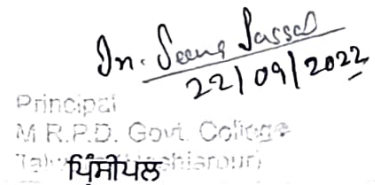 Dr. Seema Jassal
22/09/2022
Principal
M.R.P.D. Govt. College
(Hoshiarpur)
ਪ੍ਰਿੰਸੀਪਲ